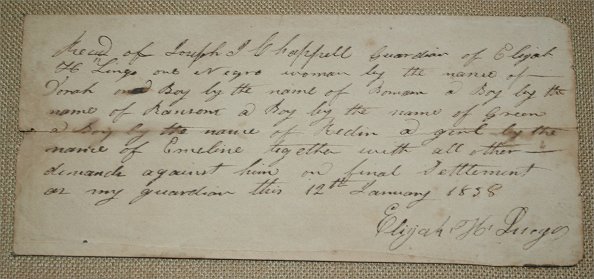 Recd of Joseph J Chappell Guardian of Elijah
H Lingo one Negro woman by the name of
Dorah and Boy by the name of Roman a Boy by the
name of Ransom a Boy by the name of Green
a Boy by the name of Redin a girl by the
name of Emeline together with all other
demands against him on final Settlement
as my guardian this 12th January 1838
Elijah H Lingo